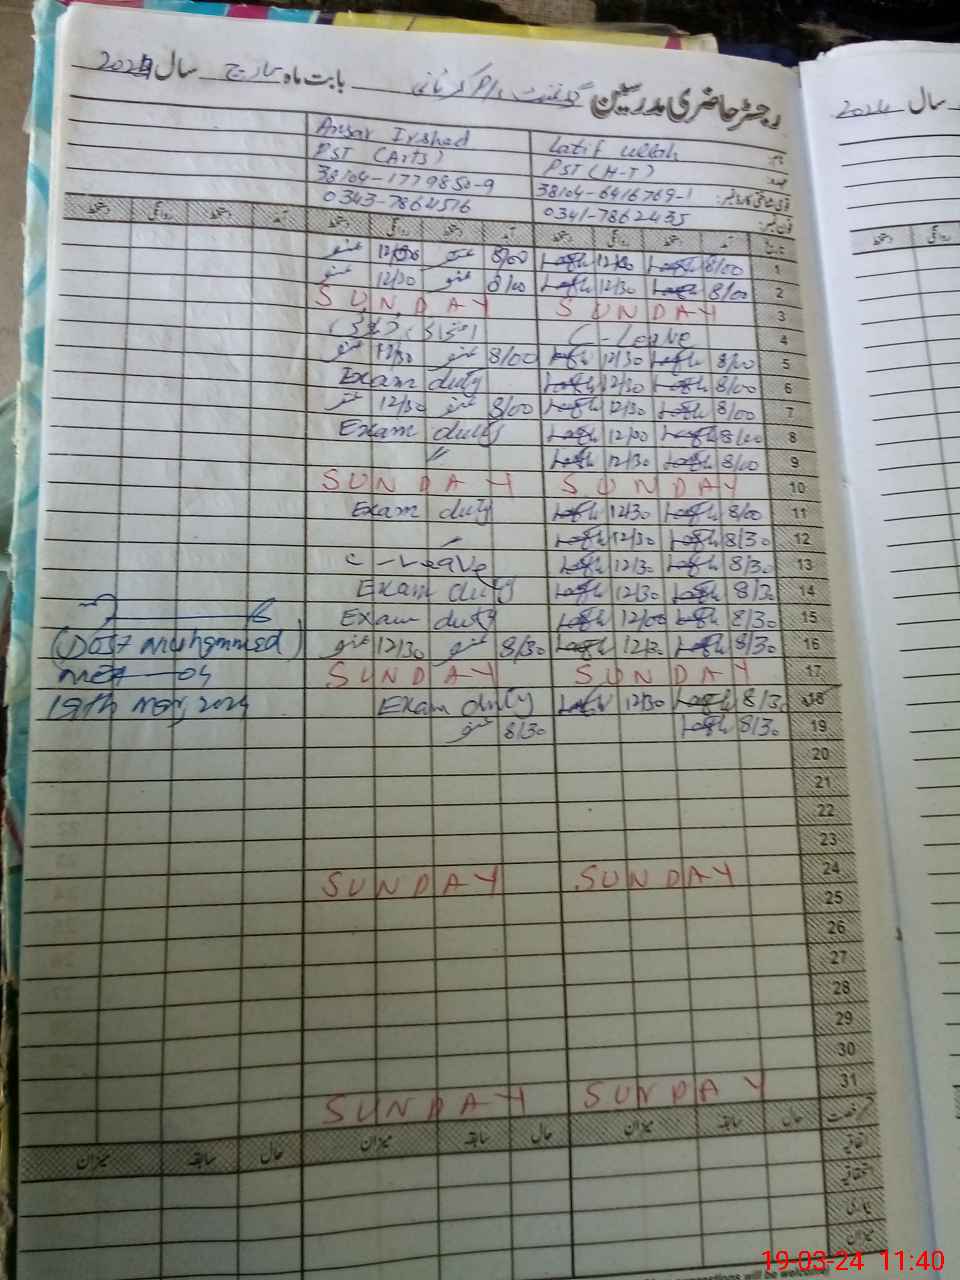 رجسٹر حاضری مدرسین گورنمنٹ بابت ماہ مارچ سال 2024
Ansar Irshad Latif Ullah نام
PST (Arts) PST (H-T) عہدہ
38104-1779850-9 38104-6416769-1
0343-7862516 0341-7862435
دستخط روانگی دستخط آمد دستخط روانگی دستخط آمد دستخط روانگی دستخط آمد تاریخ
8/00 Latif Latif 8/00 1
12/30 8/00 Latif 12/30 Latif 8/00 2
SUNDAY SUNDAY 3
C-Leave 4
12/30 8/00 Latif 12/30 Latif 8/00 5
Exam duty Latif 12/30 Latif 8/00 6
12/30 8/00 Latif 12/30 Latif 8/00 7
Exam duty Latif 12/00 Latif 8/00 8
〃 Latif 12/30 Latif 8/00 9
SUNDAY SUNDAY 10
Exam duty Latif 12/30 Latif 8/00 11
Latif 12/30 Latif 8/30 12
C-Leave Latif 12/30 Latif 8/30 13
Exam duty Latif 12/30 Latif 8/30 14
Exam duty Latif 12/00 Latif 8/30 15
(Dost Muhammad) 12/30 8/30 Latif 12/30 Latif 8/30 16
SUNDAY SUNDAY 17
19th Mar, 2024 Exam duty Latif 12/30 Latif 8/30 18
8/30 Latif 8/30 19
20
21
22
23
SUNDAY SUNDAY 24
25
26
27
28
29
30
SUNDAY SUNDAY 31
میزان سابقہ حال میزان سابقہ حال میزان سابقہ حال
اتفاقیہ
استحقاقیہ
بیماری
میزان
سال 2024
دستخط روانگی
19-03-24 11:40